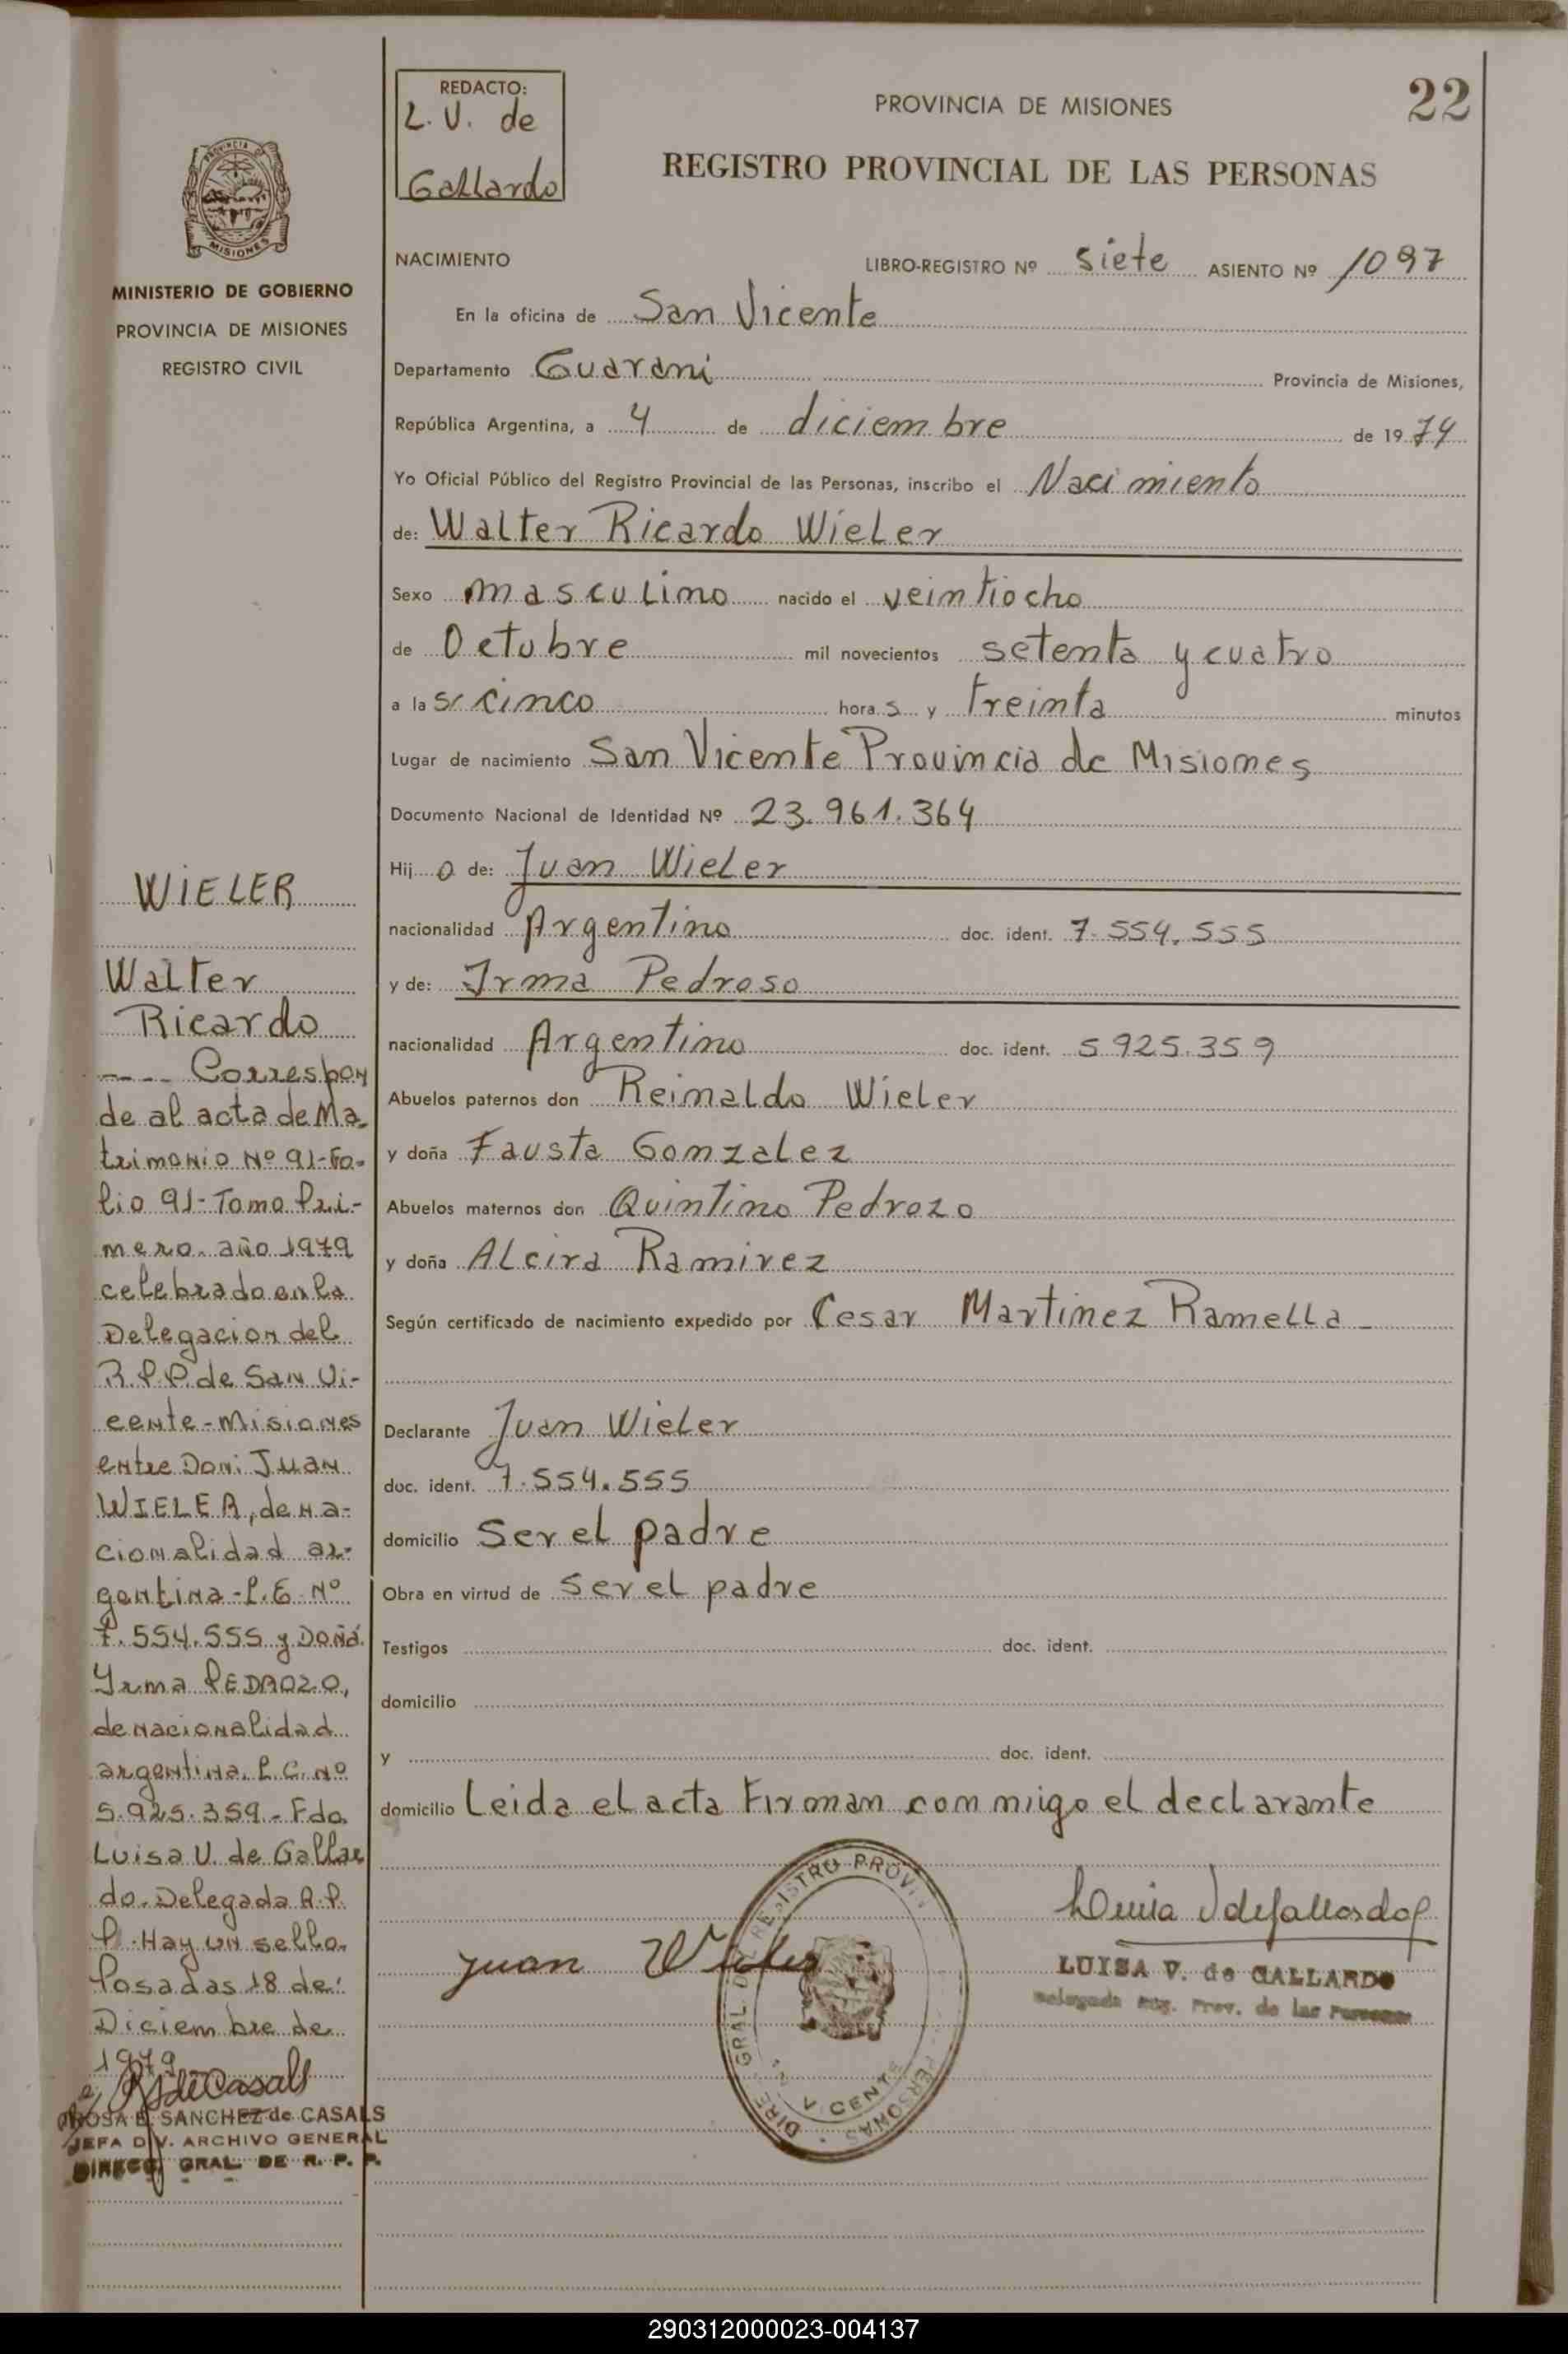 REDACTO:
L. V. de
Gallardo
PROVINCIA DE MISIONES
22
REGISTRO PROVINCIAL DE LAS PERSONAS
PROVINCIA DE
MISIONES
MINISTERIO DE GOBIERNO
PROVINCIA DE MISIONES
REGISTRO CIVIL
NACIMIENTO LIBRO-REGISTRO Nº siete ASIENTO Nº 1097
En la oficina de San Vicente
Departamento Guarani Provincia de Misiones,
República Argentina, a 4 de diciembre de 1974
Yo Oficial Público del Registro Provincial de las Personas, inscribo el Nacimiento
de: Walter Ricardo Wieler
Sexo masculino nacido el veintiocho
de Octubre mil novecientos setenta y cuatro
a las cinco horas y treinta minutos
Lugar de nacimiento San Vicente Provincia de Misiones
Documento Nacional de Identidad Nº 23.961.364
Hijo de: Juan Wieler
nacionalidad Argentino doc. ident. 7.554.555
y de: Irma Pedroso
nacionalidad Argentino doc. ident. 5925.359
Abuelos paternos don Reinaldo Wieler
y doña Fausta Gonzalez
Abuelos maternos don Quintino Pedrozo
y doña Alcira Ramirez
Según certificado de nacimiento expedido por Cesar Martinez Ramella
Declarante Juan Wieler
doc. ident. 7.554.555
domicilio Ser el padre
Obra en virtud de ser el padre
Testigos doc. ident.
domicilio
y doc. ident.
domicilio Leida el acta Firman con migo el declarante
Juan Wieler
LUISA V. de GALLARDO
Delegada Reg. Prov. de las Personas
WIELER
Walter
Ricardo
---- Correspon
de al acta de Ma-
trimonio Nº 91-Fo-
lio 91-Tomo Pri-
mero. año 1979
celebrado en la
Delegacion del
R.P.P. de San Vi-
cente-Misiones
entre Don: Juan
WIELER, de na-
cionalidad ar-
gentina-L.E.Nº
7.554.555 y Doña
Yrma PEDROZO,
de nacionalidad
argentina. L.C. Nº
5.925.359.- Fdo.
Luisa V. de Gallar
do. Delegada R.P.
P. Hay un sello.
Posadas 18 de
Diciembre de
1979
ROSA E. SANCHEZ de CASALS
JEFA DIV. ARCHIVO GENERAL
DIRECC. GRAL. DE R. P. P.
290312000023-004137